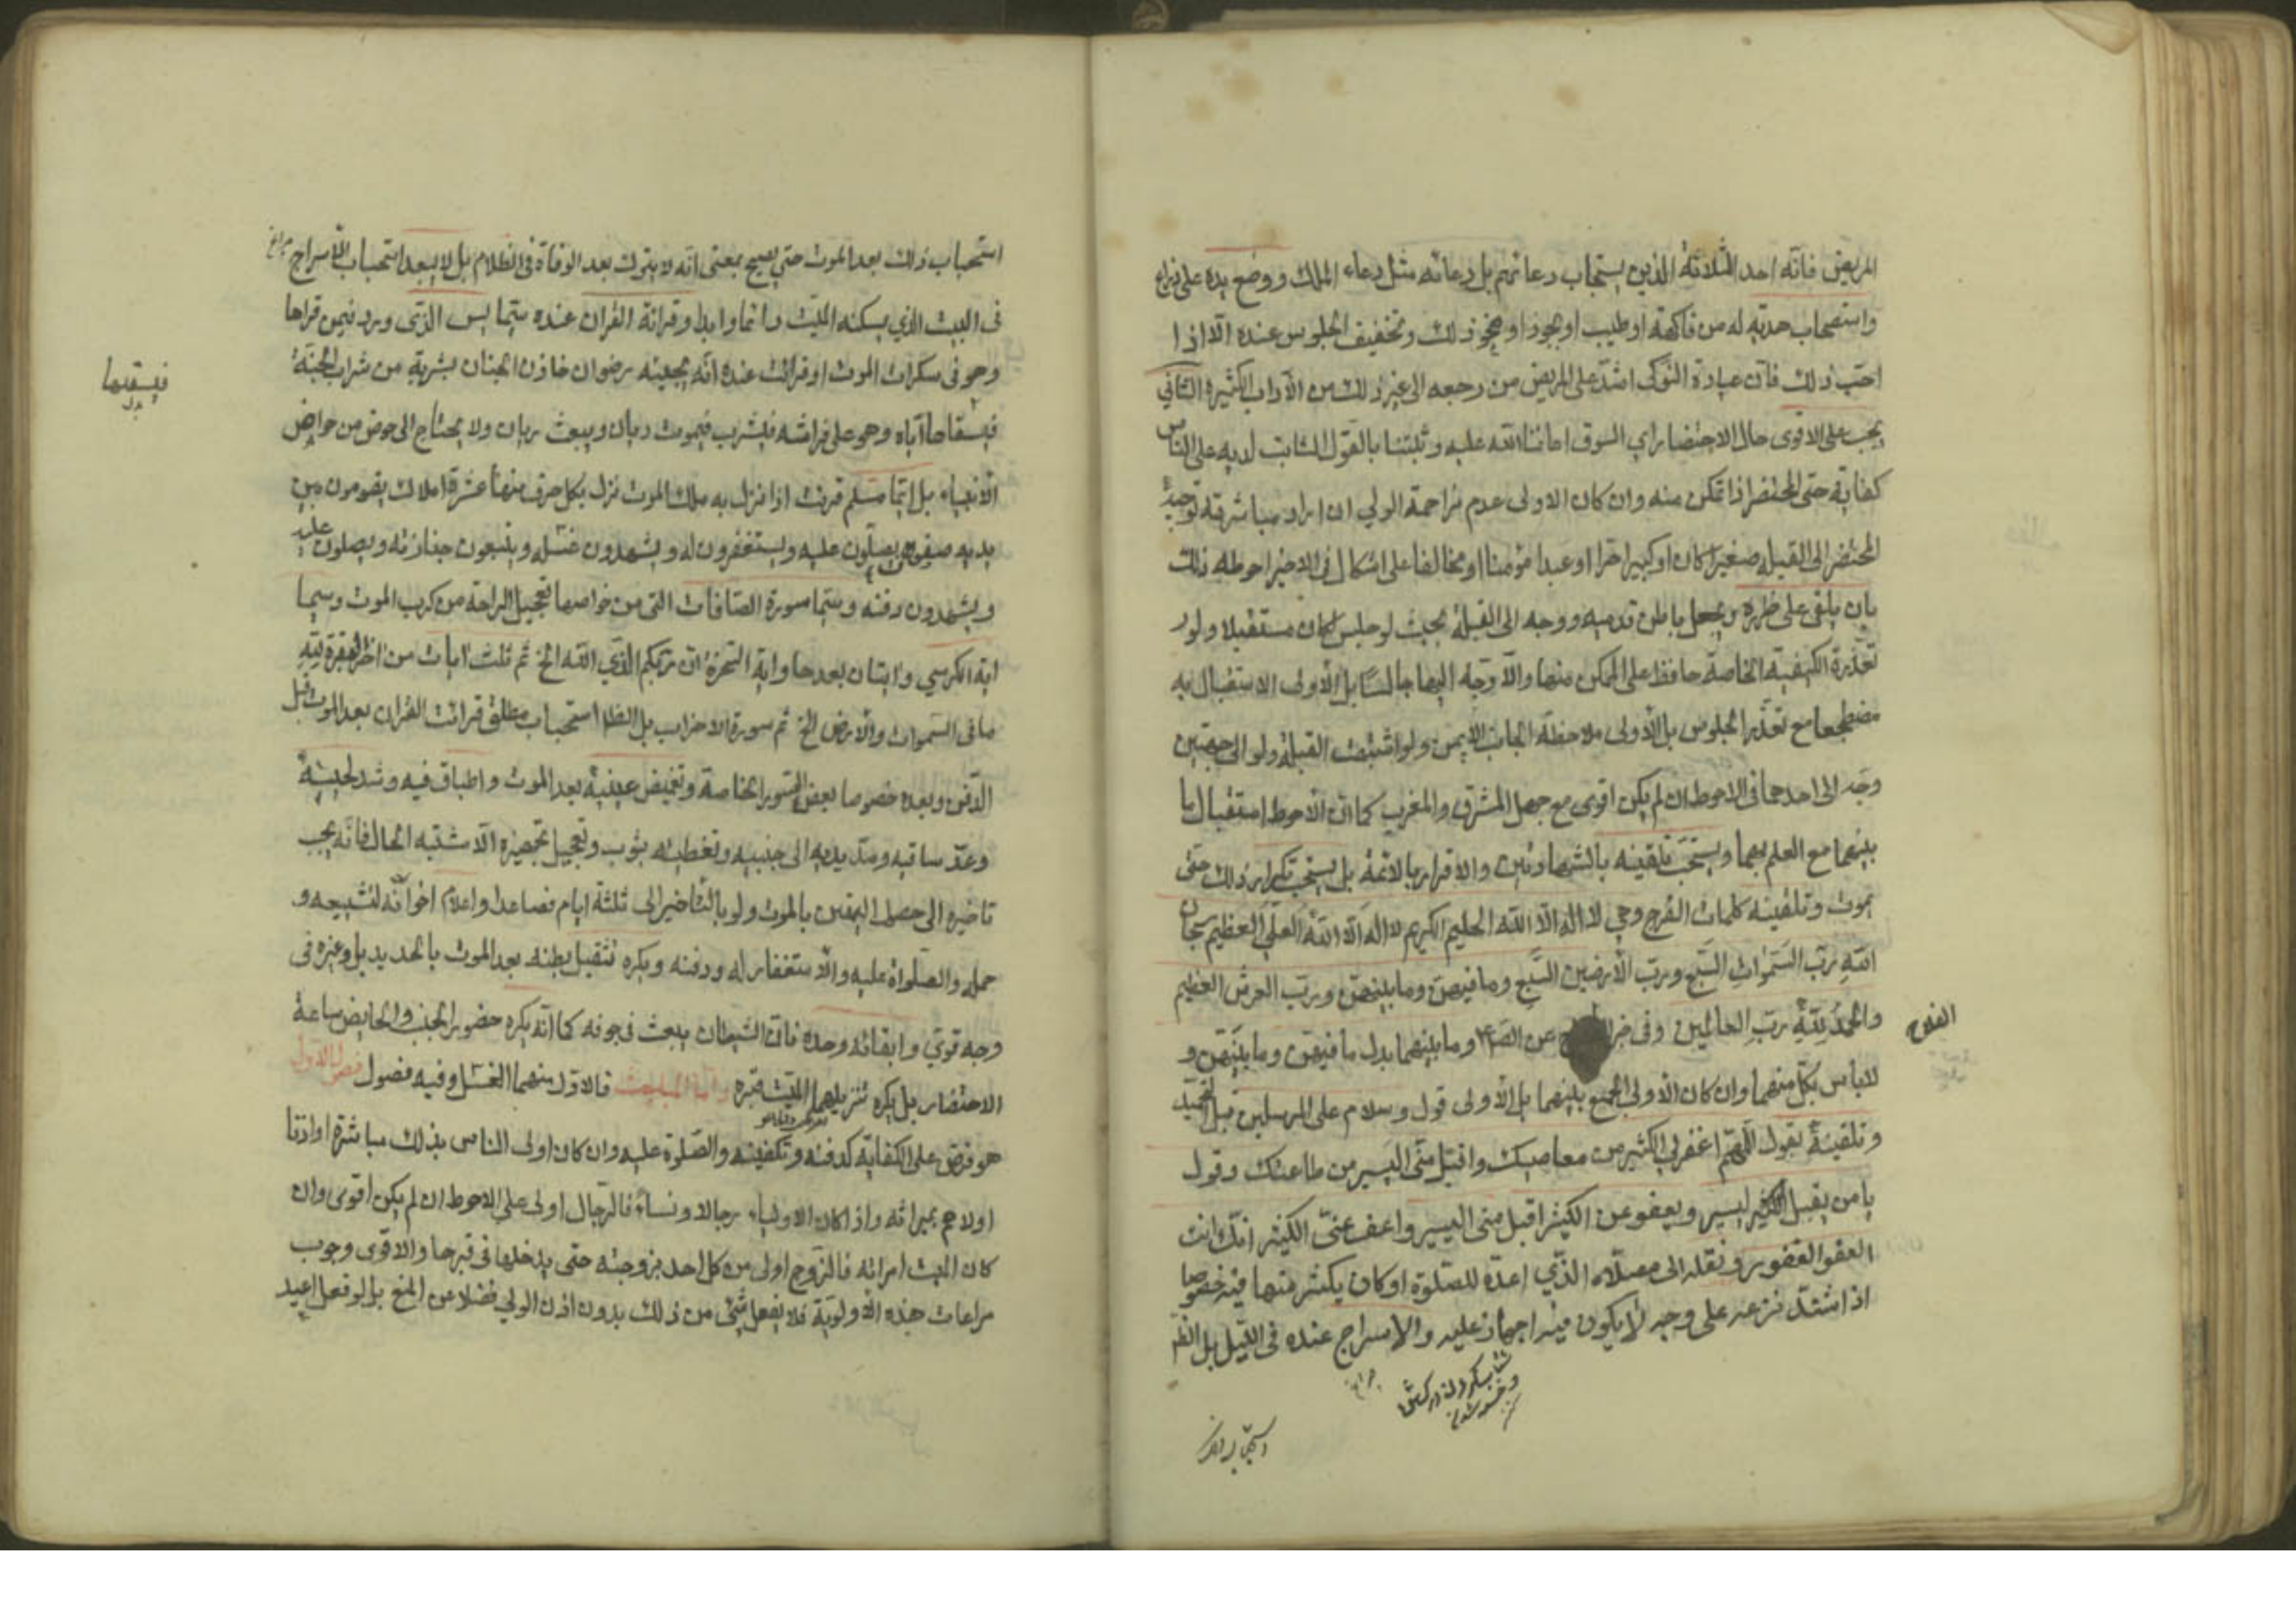 المريض فانه احد الثلاثة الذين يستجاب دعائهم بل دعائه مثل دعاء الملك ووضع يده على ذراعه
واستصحاب هديه له من فاكهة او طيب او بخور او نحو ذلك وتخفيف الجلوس عنده الا اذا
احب ذلك فان عيادة النوكى اشد على المريض من وجعه الى غير ذلك من الآداب الكثيرة الثاني
يجب على الاقوى حال الاحتضار اي السوق اعاننا الله عليه وثبتنا بالقول الثابت لديه على الناس
كفاية حتى المحتضر اذا تمكن منه وان كان الاولى عدم مزاحمة الولي ان اراد مباشرته توجيه
المحتضر الى القبلة صغيرا كان او كبيرا حرا او عبدا مؤمنا او مخالفا على اشكال في الاخير احوطه ذلك
بان يلقى على ظهره ويجعل باطن قدميه ووجهه الى القبلة بحيث لو جلس لكان مستقبلا ولو
تعذرت الكيفية الخاصة حافظ على الممكن منها والا وجه اليها جالسا بل الأولى الاستقبال به
مضطجعا مع تعذر الجلوس بل الأولى ملاحظة الجانب الايمن ولو اشتبهت القبلة ولو الى جهتين
وجه الى احدهما في الاحوط ان لم يكن اقوى مع جهل المشرق والمغرب كما ان الاحوط استقبال ما
بينهما مع العلم بهما ويستحب تلقينه بالشهادتين والاقرار بالائمة بل يستحب تكرار ذلك حتى
يموت وتلقينه كلمات الفرج وهي لا اله الا الله الحليم الكريم لا اله الا الله العلي العظيم سبحان
الله رب السموات السبع ورب الأرضين السبع وما فيهن وما بينهن ورب العرش العظيم
والحمد لله رب العالمين وفي خبر عن الص وما بينهما بدل ما فيهن وما بينهن و
القداح
لا بأس بكل منهما وان كان الأولى الجمع بينهما بل الأولى قول وسلام على المرسلين قبل التحميد
وتلقينه بقول اللهم اغفر لي الكثير من معاصيك واقبل مني اليسير من طاعتك وقول
يا من يقبل اليسير ويعفو عن الكثير اقبل مني اليسير واعف عني الكثير انك انت
العفو الغفور ونقله الى مصلاه الذي اعده للصلوة او كان يكثر منها فيه خصوصا
اذا اشتد نزعه على وجه لا يكون فيه اجهاز عليه والاسراج عنده في الليل بل الظ
استحباب ذلك بعد الموت حتى يصبح بمعنى انه لا يترك بعد الوفاة في الظلام بل لا يبعد استحباب الأسراج
في البيت الذي يسكنه الميت دائما وابدا وقرائة القران عنده سيما يس التي ورد فيمن قراها
وهو في سكرات الموت او قرائت عنده انه يجيئه رضوان خازن الجنان بشربة من شراب الجنة
فيسقيها
بدل
فيسقاها اياه وهو على فراشه فيشرب فيموت ريان ويبعث ريان ولا يحتاج الى حوض من حواض
الانبياء بل ايما مسلم قرئت اذا نزل به ملك الموت نزل بكل حرف منها عشرة املاك يقومون بين
يديه صفوفا يصلون عليه ويستغفرون له ويشهدون غسله ويتبعون جنازته ويصلون عليه
ويشهدون دفنه وسيما سورة الصافات التي من خواصها تعجيل الراحة من كرب الموت وسيما
اية الكرسي وايتان بعدها واية السخرة ان ربكم الذي الله الخ ثم ثلث ايات من اخر البقرة لله
ما في السموات والأرض الخ ثم سورة الاحزاب بل الظ استحباب مطلق قرائت القران بعد الموت قبل
الدفن وبعده خصوصا بعض السور الخاصة وتغميض عينيه بعد الموت واطباق فيه وشد لحييه
ومد ساقيه ومد يديه الى جنبيه وتغطيته بثوب وتعجيل تجهيزه الا مشتبه الحال فانه يجب
تاخيره الى حصول اليقين بالموت ولو بالتأخير الى ثلثة ايام فصاعدا واعلام اخوانه لتشييعه و
حمله والصلواة عليه والأستغفار له ودفنه ويكره تثقيل بطنه بعد الموت بالحديد بل وغيره في
وجه قوي وابقائه وحده فان الشيطان يبعث في جوفه كما انه يكره حضور الجنب والحايض ساعة
الاحتضار بل يكره تنزيلهما الميت قبره واما المباحث فالاول منها الغسل وفيه فصول فصل الاول
هو فرض على الكفاية كدفنه وتكفينه والصلوة عليه وان كان اولى الناس بذلك مباشرة او اذنا
اولاهم بميراثه واذا كان الاولياء رجالا ونساء فالرجال اولى على الاحوط ان لم يكن اقوى وان
كان الميت امرائة فالزوج اولى من كل احد بزوجته حتى يدخلها في قبرها والاقوى وجوب
مراعات هذه الأولوية فلا يفعل شئ من ذلك بدون اذن الولي فضلا عن المنع بل لو فعل اعيد